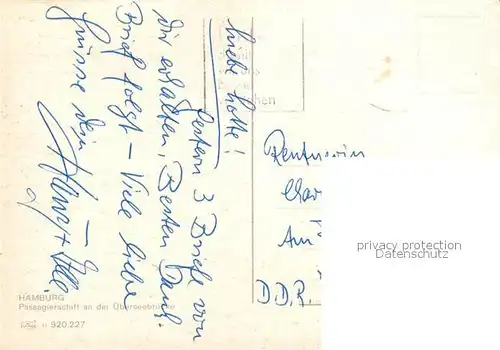 Liebe Lotte!
Gestern 3 Briefe von
Dir erhalten, Besten Dank.
Brief folgt – Viele liebe
Grüsse Dein
Rentnerin
Am
DDR.
privacy protection
Datenschutz
HAMBURG
Passagierschiff an der Überseebrücke
n 920.227